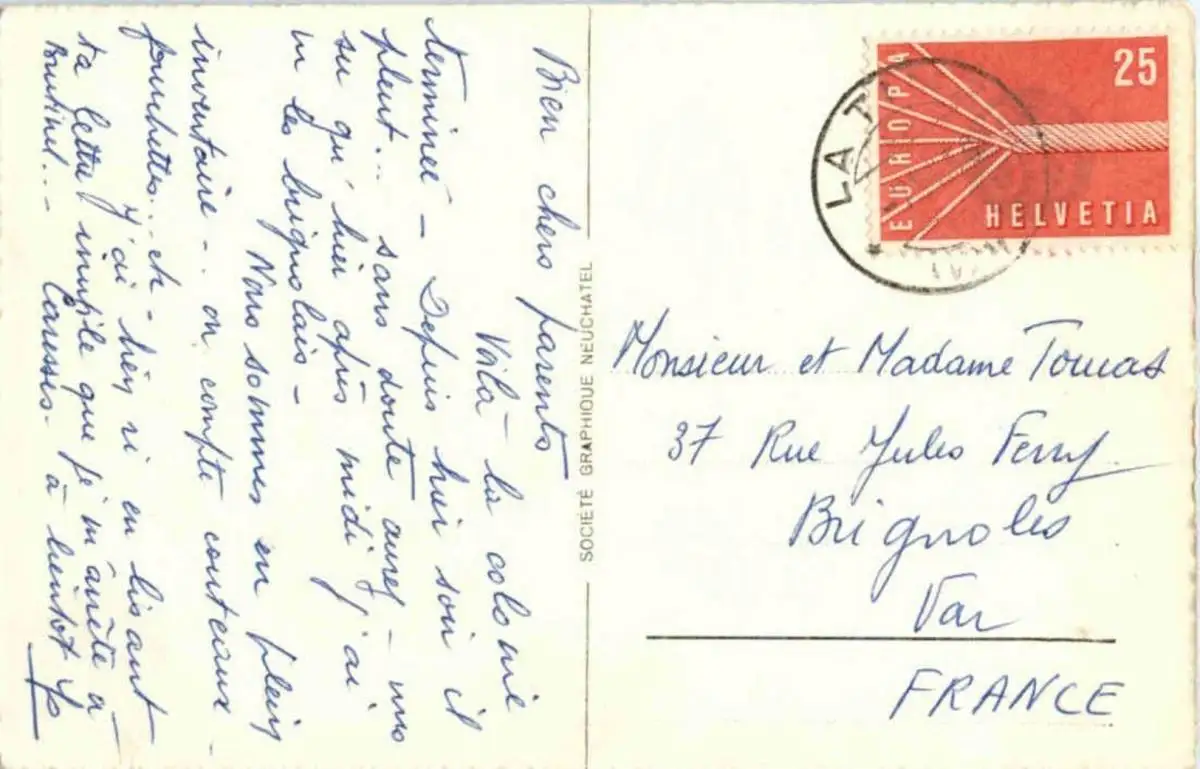 Bien chers parents
Voilà la colonie
terminée - Depuis hier soir il
pleut... sans doute avez-vous
su qu'hier après midi j'ai
vu les brignolais -
Nous sommes en plein
inventaire.. on compte couteaux -
fourchettes... etc - hier, ri en lisant
J'ai
ta lettre inutile que je m'arrête à
... Caresses. à bientôt
SOCIÉTÉ GRAPHIQUE NEUCHATEL
EUROPA
25
HELVETIA
LA
Monsieur et Madame Tomas
37 Rue Jules Ferry
Brignoles
Var
FRANCE